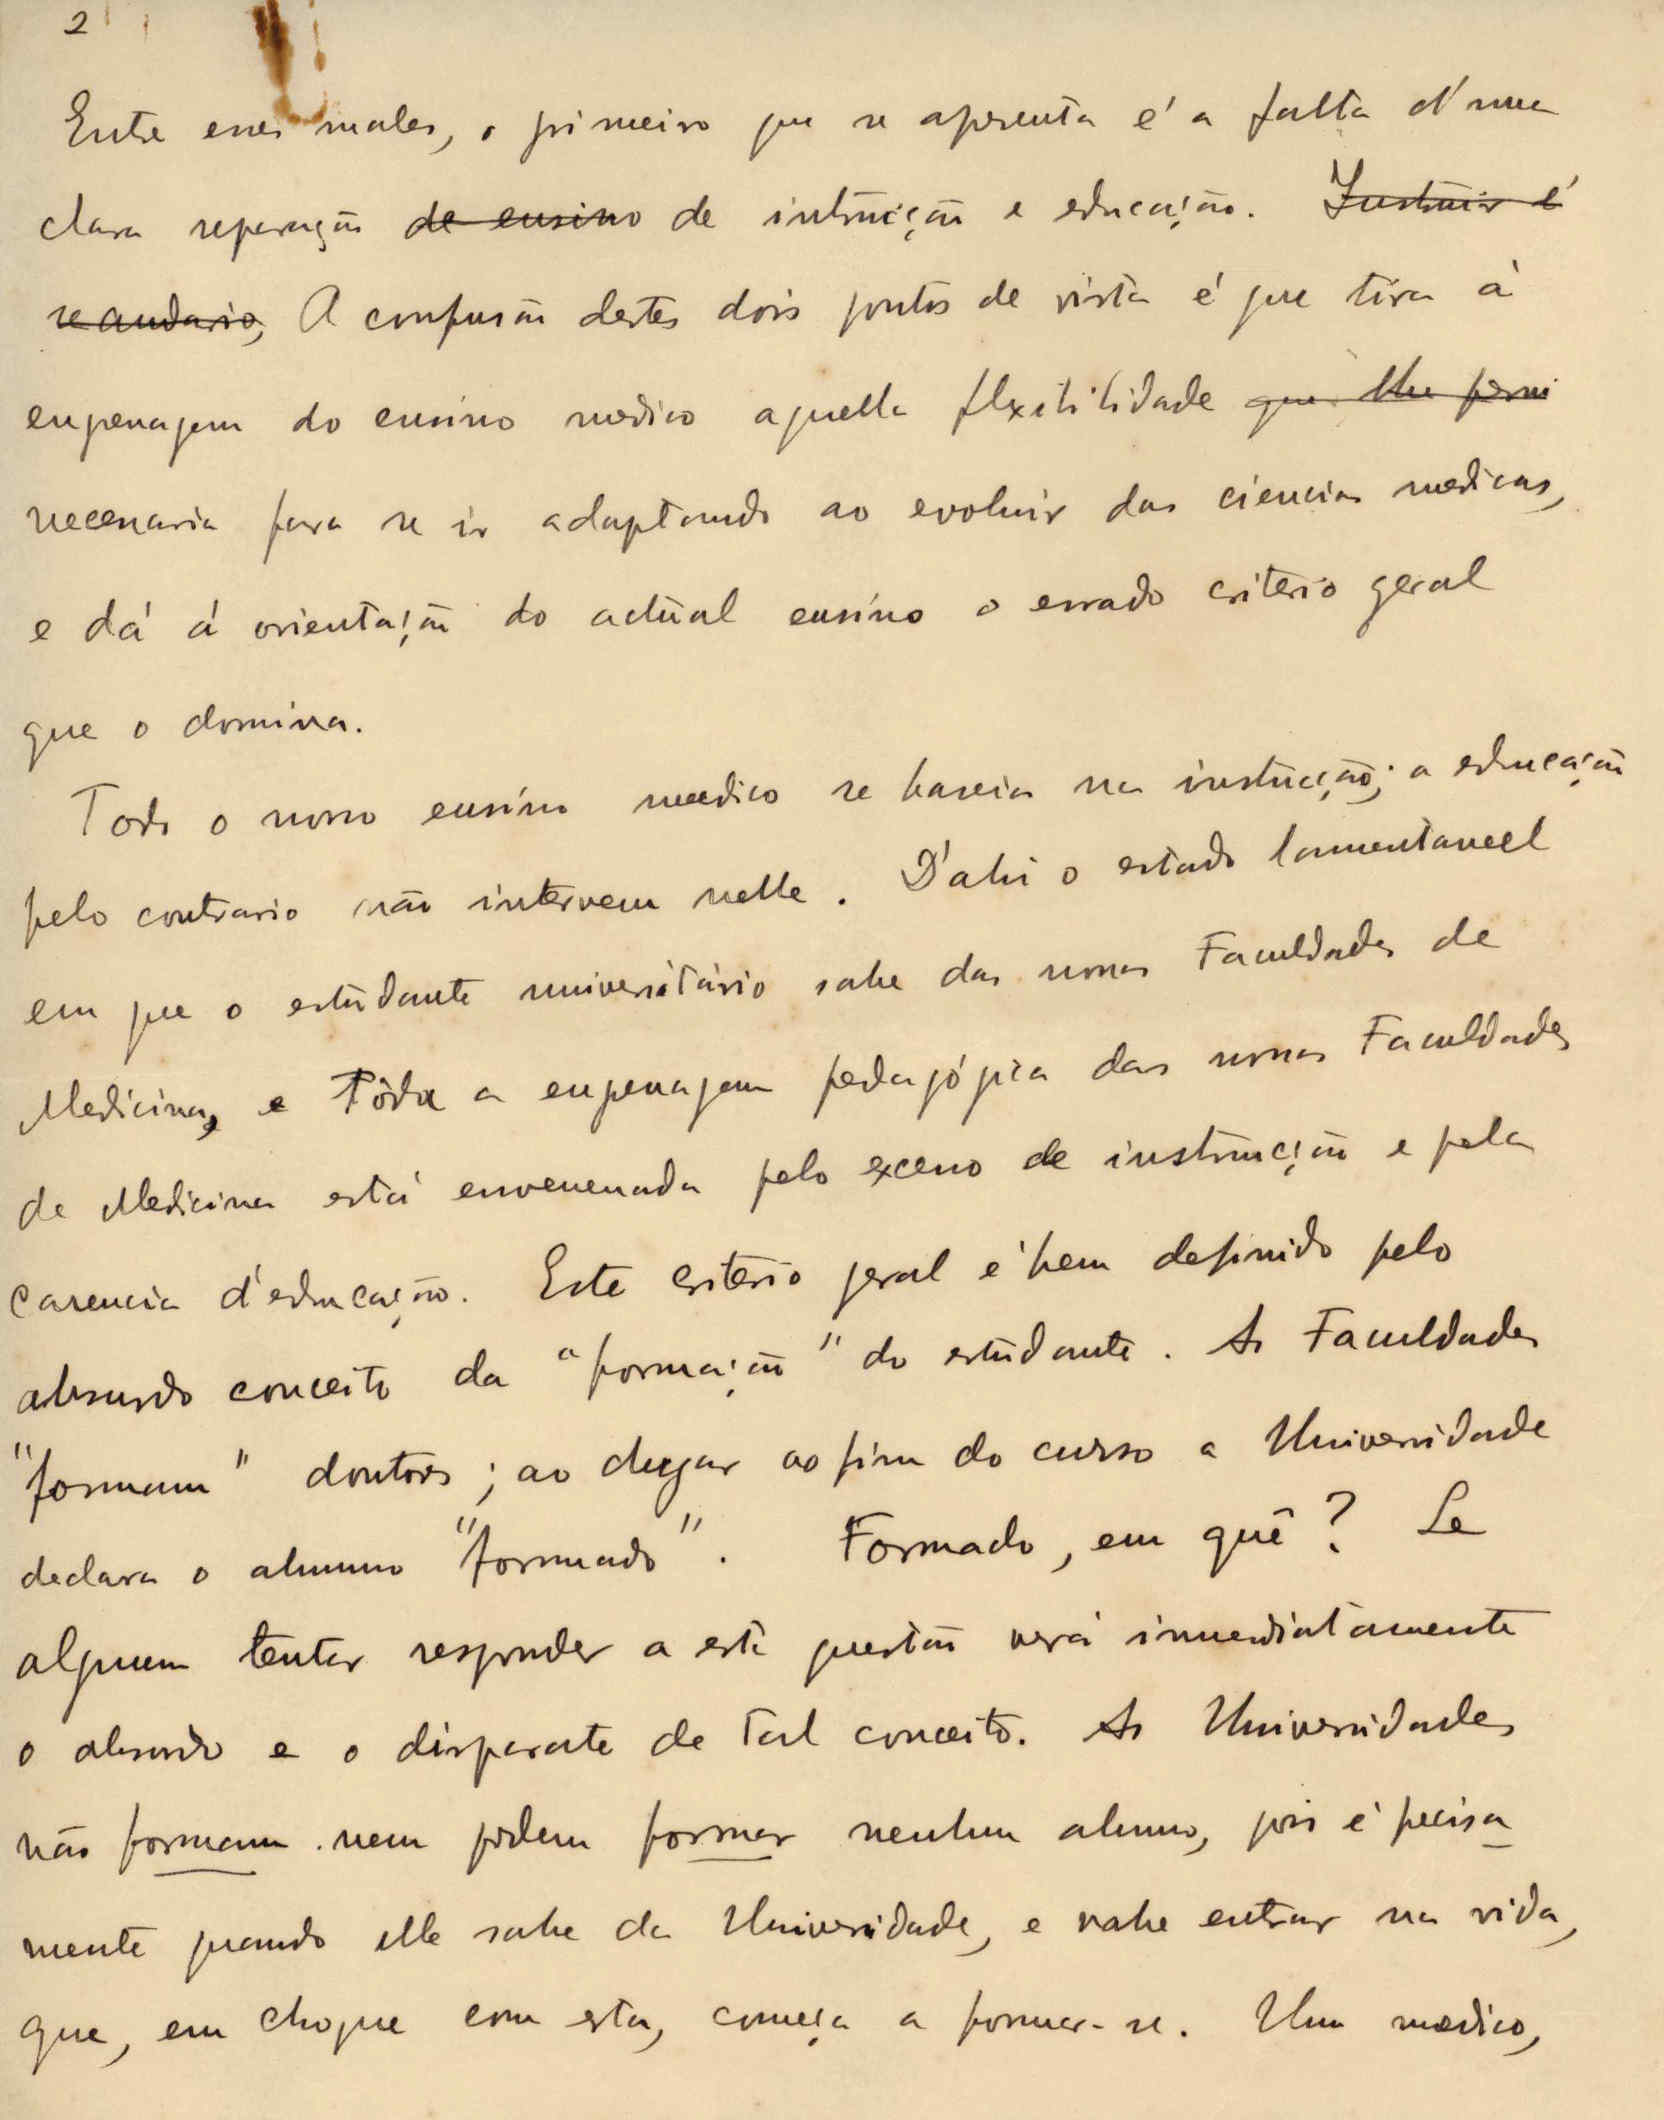 2
Entre esses males, o primeiro que se apresenta é a falta d'uma
clara separação de ensino de intrucção e educação. Instruir é
A confusão destes dois pontos de vista é que tira á
engenagem do ensino medico aquella flexibilidade que lhe permi
necessaria para se ir adaptando ao evoluir das ciencias medicas,
e dá á orientação do actual ensino o errado criterio geral
que o domina.
Todo o nosso ensino medico se baseia na instrucção; a educação
pelo contrario não intervem nelle. D'ahi o estado lamentaveel
em que o estudante universitário sahe das nossas Faculdades de
Medicina, e Tôda a engenagem pedagógica das nossas Faculdades
de Medicina está envenenada pelo excesso de instrucção e pela
carencia d'educação. Este criterio geral é bem definido pelo
absurdo conceito da "formação" do estudante. As Faculdades
"formam" doutores; ao chegar ao fim do curso a Universidade
declara o alumno "formado". Formado, em quê? Se
alguem tentar responder a esta questão verá immediatamente
o absurdo e o disparate de tal conceito. As Universidades
não formam nem podem formar nenhum alumno, pois é precisa
mente quando elle sahe da Universidade, e vahe entrar na vida,
que, em choque com esta, começa a formar-se. Um medico,